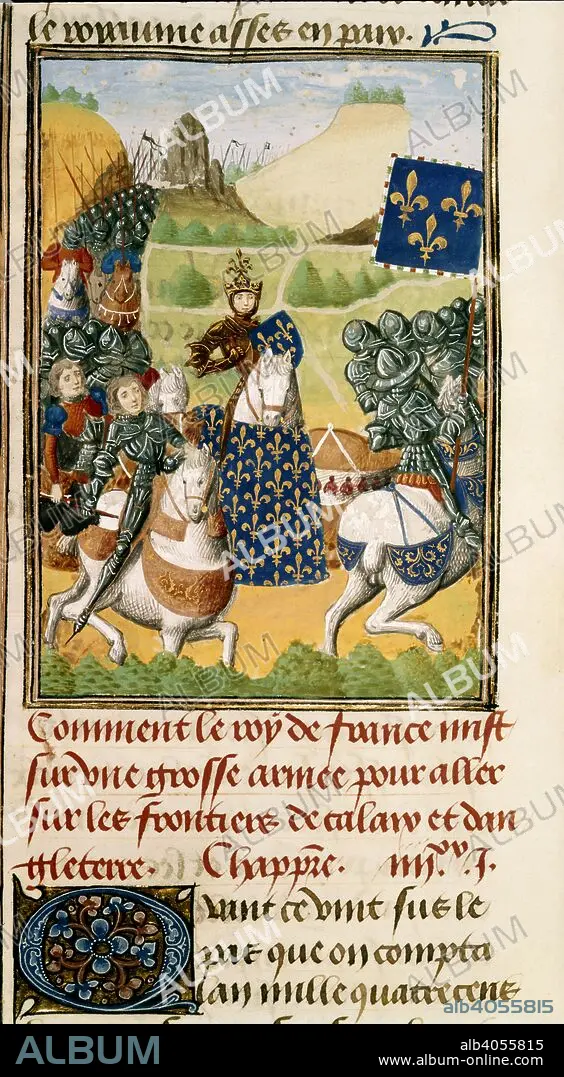 le royaume asses en paix.
Comment le roy de france mist
sur vne grosse armee pour aller
sur les frontiers de calaix et dan
gleterre. Chappre. iiijxx. j.
Quant ce vint sus le
pas que on compta
lan mille quatre cens
alb4055815
ALBUM
alb4055815
www.album-online.com